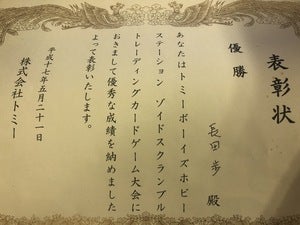 表彰状
優勝
長田 歩 殿
あなたはトミーボーイズホビー
ステーション ゾイドスクランブル
トレーディングカードゲーム大会に
おきまして優秀な成績を納めました
よって表彰いたします。
平成十七年五月二十一日
株式会社トミー